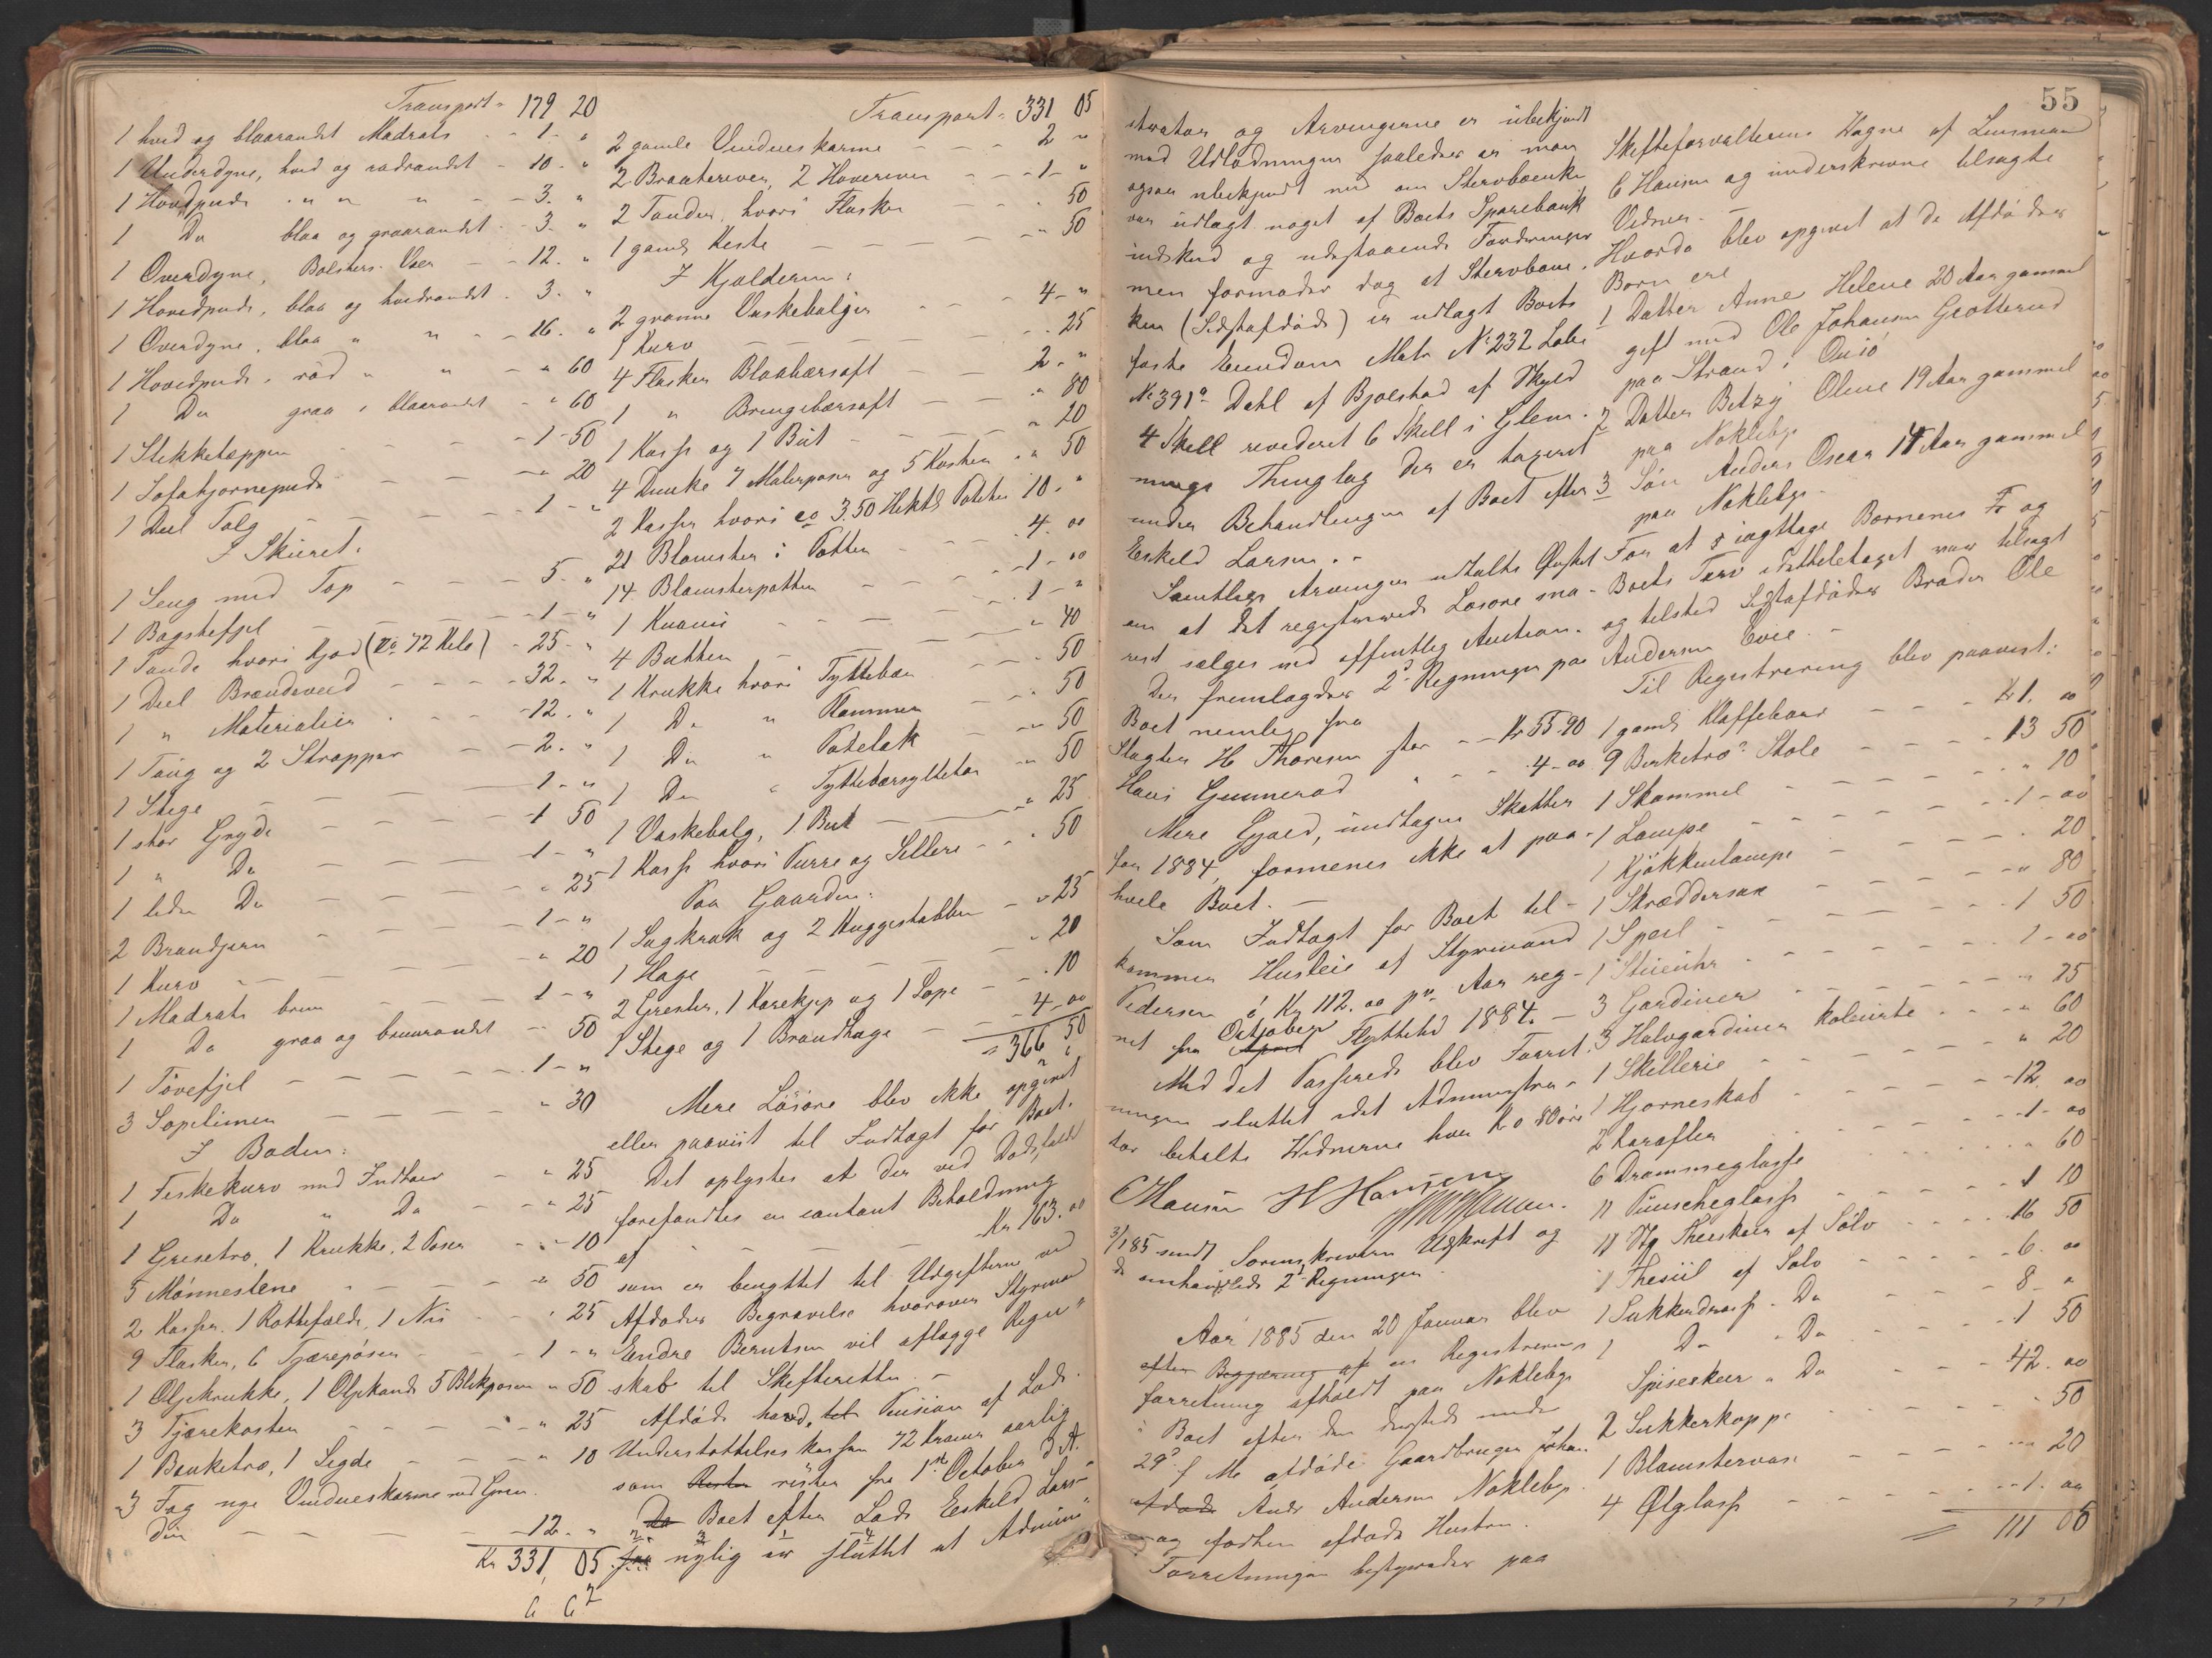 Transport " 179 20
1 hvid og blaarandet Madrats - - 1 - "
1 Underdyne, hvid og rødrandet - 10 - "
1 Hovedpude " " " " - - 3. "
1 Do blaa og graarandet - 3. "
1 Overdyne, Bolsters Vaer - - 12. "
1 Hovedpude, blaa og hvidrandet . 3. "
1 Overdyne, blaa " " - - 16. "
1 Hovedpude, rød " " - " 60
1 Do graa i blaarandet - " 60
1 Stikketæppe - - 1 - 50
1 Sofahjørnepude - - " 20
1 Deel Talg - - 1 - "
I Skuret:
1 Seng med Top - - - 5. "
1 Bagstefjel - - - 1 - "
1 Tønde hvori Kjød (ca 72 Kilo) - 25 - "
1 Deel Brændeved - - - - 32. "
1 " Materialier - - - - 12. "
1 Taug og 2 Stropper - - 2. "
1 Stige - - - - 1 - "
1 stor Gryde - - - 1 50
1 " Do - - - 1 - "
1 liden Do - - - " 25
2 Brandjern - - - 1 - "
1 Kurv - - - " 20
1 Madrats brun - - - 1 - "
1 Do graa og brunrandet - " 50
1 Tøvefjel - - - - 1 - "
3 Sopelimer - - - " 30
I Boden:
1 Fiskekurv med Indhold - - " 25
1 Do " Do - - " 25
1 Grisetro, 1 Krukke, 2 Poser - - " 10
5 Mønnestene - - - " 50
2 Kasser, 1 Rottefælde, 1 Nis - - " 25
9 Flasker, 6 Tjærepøser - - 1 - "
1 Oljekrukke, 1 Oljekande 5 Blikposer " 50
3 Tjærekoster - - - - " 25
1 Bøuketro, 1 Segde - - - " 10
3 Fag nye Vindueskarme ved Gren
din - - - 12. "
Kr 331, 05
Transport " 331 05
2 gamle Vindueskarme - - - 2 "
2 Braateriver, 2 Haveriver - - 1 - "
2 Tønder, hvori Flasker - - " 50
1 gamle Keste - - - - " 50
I Kjælderen:
2 grønne Vaskebaljer - - - 4 - "
1 Kurv - - - - 25
4 Flasker Blaabærsaft - - 2 - "
1 " Bringebærsaft - - " 80
1 Kasse og 1 Büt - - - " 20
4 Dunke 7 Malerposer og 5 Koster - " 50
2 Kasser hvori ca 3.50 Hektl Poteter 10. "
21 Blomster i Potter - - 4. 00
14 Blomsterpotter - - - 1 - 00
1 - - - 1 - "
4 Bøtter - - - - " 40
1 Krukke hvori Tyttebær - - " 50
1 Do " Plommer - - " 50
1 Do " - - " 50
1 Do " Tyttebærsyltetøi " 50
1 Vaskebalg, 1 Büt - - " 25
1 Kasse hvori Purre og Selleri - - " 50
Paa Gaarden:
1 Sagkrak og 2 Huggestabber - " 25
1 Hage - - - - - " 20
2 Grester, 1 Karekjep og 1 Sope - - " 10
1 Stige og 1 Brandhage - - 4 - 00
= 366 50
Mere Løsøre blev ikke opgivet
eller paaviist til Indtægt for Boet.
Det oplystes at der ved Dødsfaldet
forefandtes en contant Beholdning
af - - - - Kr. 163. 00
som er benyttet til Udgifterne ved
Afdødes Begravelse hvorover Styrmand
Endre Berntsen vil aflægge Regn"
skab til Skifteretten. -
Afdøde havde, Pension af Lods
Understøttelseskassen 72 Kroner aarlig
som rester fra 1ste October d A.
Do Boet efter Lods Eskeld Lars"
nylig er sluttet at Admini"
55
strator og Arvingerne er ubekjendt
med Udlodningen saaledes er man
ogsaa ubekjendt med om Stervboenken
var udlagt noget af Boets Sparebank
indskud og udestaaende Fordringer
men formoder dog at Stervboen-
ken (Sidstafdøde) er udlagt Boets
faste Eiendom Matr No 232 Løbe
No 391a Dahl af Bjølstad af Skyld
4 Skill revideret 6 Skill i Glem.
minge Thinglag der er taxeret
under Behandlingen af Boet efter
Eskeld Larsen. -
Samtlige Arvinger udtalte Ønsket
om at det registrerede Løsøre sna-
rest sælges ved offentlig Auction.
Der fremlagdes 2de Regninger paa
Boet nemlig fra
Slagter H Thoresen stor - - Kr 55-90
Hans Gunnerød " - - 4-00
Mere Gjæld, undtagen Skatter
for 1884, formenes ikke at paa-
hvile Boet. -
Som Indtægt for Boet til-
kommer Husleie af Styrmand
Pedersen á Kr 112. 00 pr. Aar reg-
net fra April October Flyttetid 1884. -
Med det Passerede blev Forret.
ningen sluttet idet Administra-
tor betalte Vidnerne hver Kr 0 80 øre
CHansen H Hansen
3/1 85 sendt Sorenskriveren Udskrift og
de omhandlede 2de Regninger
Aar 1885 den 20 Januar blev
efter Begjæring af en Registrerings
forretning afholdt paa Nøkleby
i Boet efter den dersteds under
29de f M. afdøde Gaardbruger Johan
afdøde Andr Andersen Nøkleby
og forhen afdøde Hustru.
Forretningen bestyredes paa
Skifteforvalterens Vegne af Lensmand
C Hansen og underskrevne tilsagte
Vidner. -
Hvorda blev opgivet at de Afdødes
Børn ere
1 Datter Anne Helene 20 Aar gammel
gift med Ole Johansen Grøtterød
paa Strand i Onsø
2 Datter Betzy Oline 19 Aar gammel
paa Nøkleby
3 Søn Anders Oscar 14 Aar gammel
paa Nøkleby -
For at iagttage Børnenes Fr og
Boets Tarv idetheletaget var tilsagt
og tilsted Sidstafdødes Broder Ole
Andersen Evie. -
Til Registrering blev paavist:
1 gamle Klaffebord - - - Kr 1. 00
9 Birketræs Stole - - - - 13 50
1 Skammel - - - - " 10
1 Lampe - - - - 1 - 00
1 Kjøkkenlampe - - - - " 20
1 Skræddersax - - - - " 80
1 Speil - - - - 1 50
1 Stueuhr - - - - 1 - 00
3 Gardiner - - - - " 25
3 Halvgardiner kolørte - - - " 60
1 Skillerie - - - - " 20
1 Hjørneskab - - - - 12. 00
2 Karafler - - - - 1 - 00
6 Drammeglasse - - - " 60
11 Puncheglasse - - - - 1 10
11 Theskeer af Sølv - - - 16 50
1 Thesiil af Sølv - - - 6. 00
1 Sukkerdaase " Do - - - 8 "
1 Do " Do - - - 1 50
Spiseskeer " Do - - - 42. 00
2 Sukkerkopper - - - - " 50
1 Blomstervase - - - - " 20
4 Ølglasse - - - - 1. 00
= 111 05